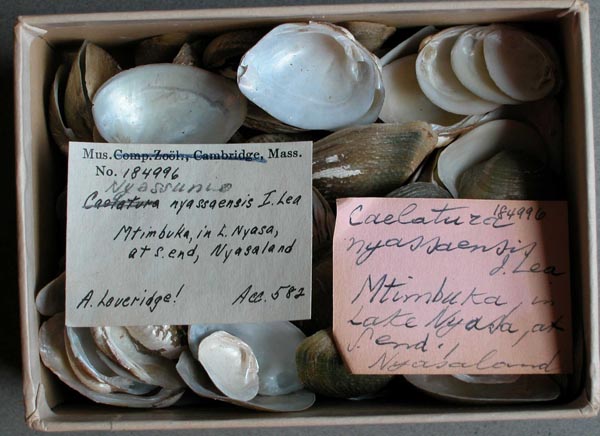 Mus. Comp. Zoöl., Cambridge, Mass.
No. 184996
Nyassunio
Caelatura nyassaensis I. Lea
Mtimbuka, in L. Nyasa,
at S. end, Nyasaland
A. Loveridge! Acc. 582
Caelatura 184996
nyassaensis
I. Lea
Mtimbuka, in
Lake Nyasa, at
S. end!
Nyasaland